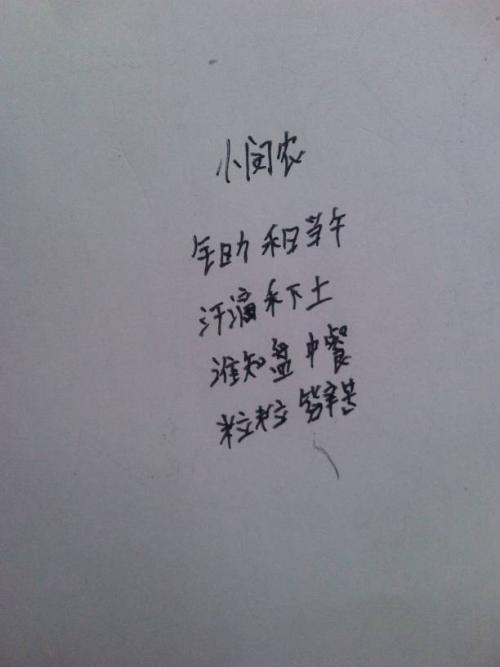 小闵农
锄禾日当午
汗滴禾下土
谁知盘中餐
粒粒皆辛苦